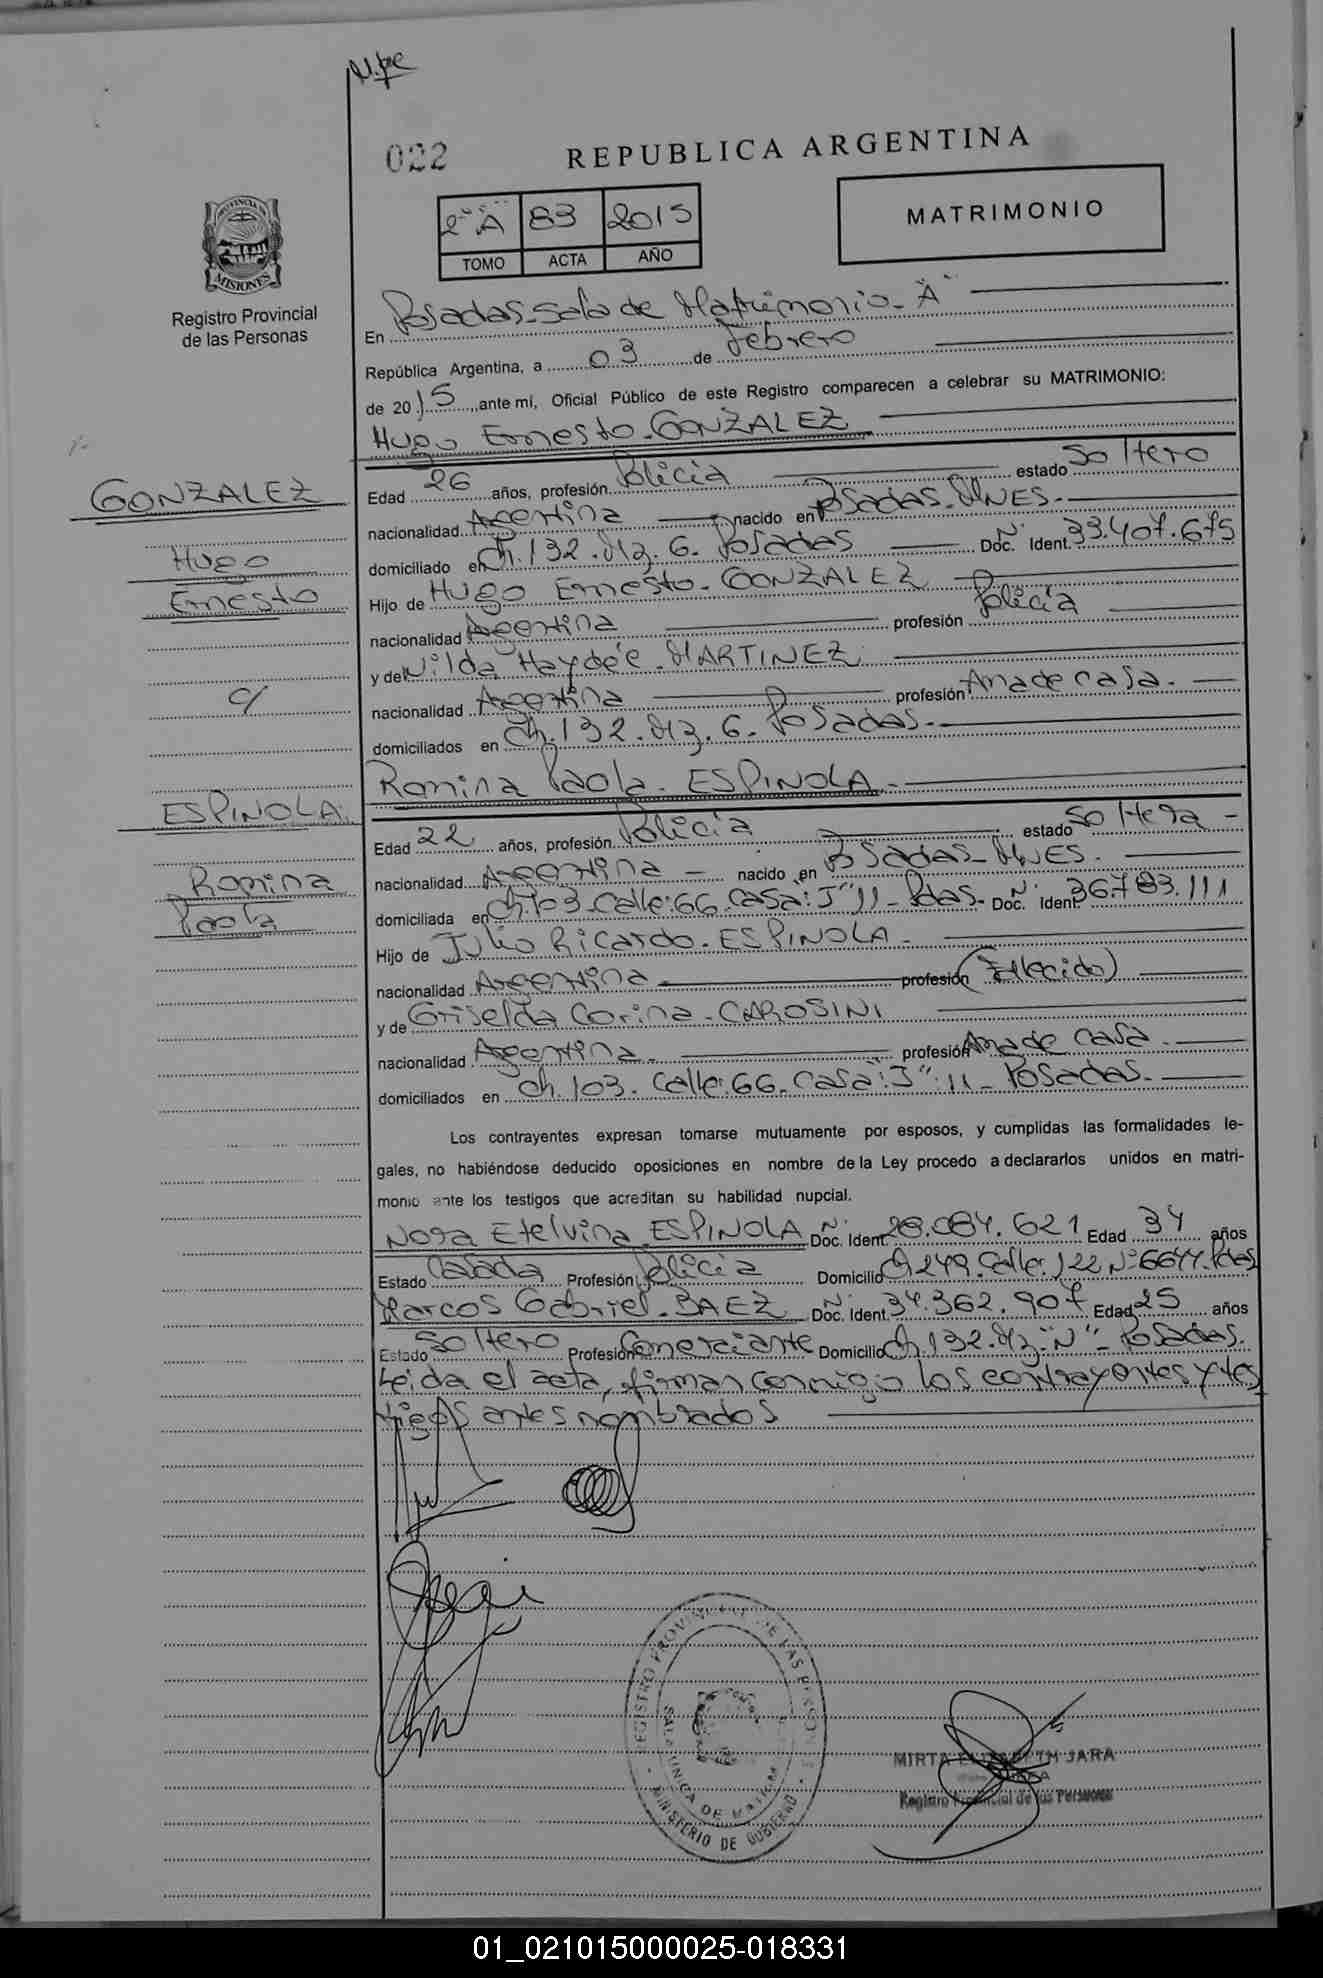 022
REPUBLICA ARGENTINA
2º "A" 83 2015
TOMO ACTA AÑO
MATRIMONIO
PROVINCIA DE MISIONES
Registro Provincial
de las Personas
En Posadas-Sala de Matrimonio-"A"
República Argentina, a 03 de Febrero
de 2015, ante mí, Oficial Público de este Registro comparecen a celebrar su MATRIMONIO:
Hugo Ernesto-GONZALEZ
GONZALEZ
Hugo
Ernesto
c/
ESPINOLA
Romina
Paola
Edad 26 años, profesión Policia estado Soltero
nacionalidad Argentina nacido en Posadas-Mnes.
domiciliado en Ch.132.Mz.6.Posadas Nº Doc. Ident. 33.407.675
Hijo de Hugo Ernesto-GONZALEZ
nacionalidad Argentina profesión Policía
y de Nilda Haydée-MARTINEZ
nacionalidad Argentina profesión Ama de casa.
domiciliados en Ch.132.Mz.6.Posadas.
Romina Paola-ESPINOLA
Edad 22 años, profesión Policia estado Soltera
nacionalidad Argentina nacido en Posadas-Mnes.
domiciliada en Ch.103.Calle:66.Casa:"J"11-Pdas. Nº Doc. Ident. 36.783.111
Hijo de Julio Ricardo-ESPINOLA
nacionalidad Argentina profesión (Fallecido)
y de Griselda Corina-CAROSINI
nacionalidad Argentina profesión Ama de casa.
domiciliados en Ch.103.Calle:66.Casa:"J":11-Posadas.
Los contrayentes expresan tomarse mutuamente por esposos, y cumplidas las formalidades le-
gales, no habiéndose deducido oposiciones en nombre de la Ley procedo a declararlos unidos en matri-
monio ante los testigos que acreditan su habilidad nupcial.
Nora Etelvina ESPINOLA Nº Doc. Ident. 28.084.621 Edad 34 años
Estado Casada Profesión Policia Domicilio Ch 249.Calle.122 Nº6644.Pdas
Marcos Gabriel-BAEZ Nº Doc. Ident. 34.362.907 Edad 25 años
Estado Soltero Profesión Comerciante Domicilio Ch.132.Mz."N"-Posadas.
Leida el acta, firman conmigo los contrayentes y tes
tigos antes nombrados
REGISTRO PROVINCIAL DE LAS PERSONAS
SALA UNICA DE MATRIM
MINISTERIO DE GOBIERNO
MIRTA ELIZABETH JARA
Registro Provincial de las Personas
01_021015000025-018331